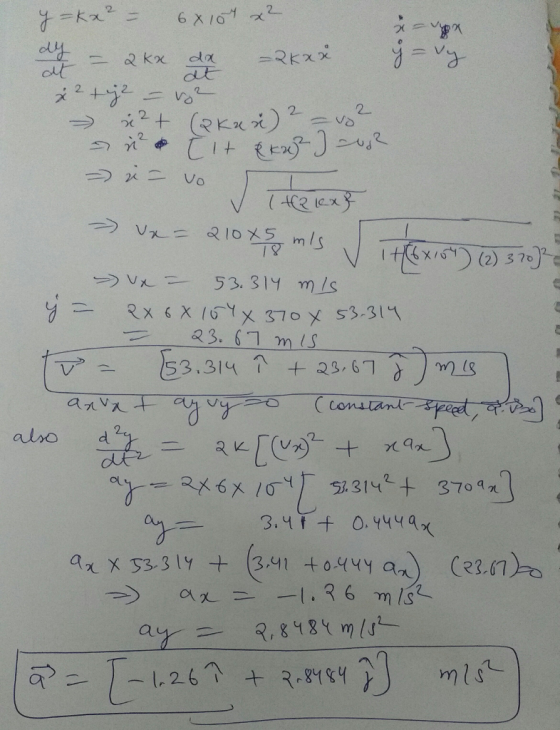 y = kx² = 6×10⁻⁴ x²
ẋ = vx
dy/dt = 2kx dx/dt = 2kxẋ
ẏ = vy
ẋ² + ẏ² = v₀²
⇒ ẋ² + (2kxẋ)² = v₀²
⇒ ẋ² [1 + (2kx)²] = v₀²
⇒ ẋ = v₀ √(1/(1+(2kx)²
⇒ vx = 210 × 5/18 m/s √(1/(1+[(6×10⁻⁴)(2)370]²
⇒ vx = 53.314 m/s
ẏ = 2×6×10⁻⁴×370×53.314
= 23.67 m/s
v⃗ = [53.314 î + 23.67 ĵ) m/s
axvx + ayvy = 0 (constant speed, a⃗.v⃗=0]
also d²y/dt² = 2k[(vx)² + xax]
ay = 2×6×10⁻⁴[53.314² + 370ax]
ay = 3.41 + 0.444ax
ax × 53.314 + (3.41 + 0.444 ax) (23.67)=0
⇒ ax = -1.26 m/s²
ay = 2.8484 m/s²
a⃗ = [-1.26 î + 2.8484 ĵ] m/s²